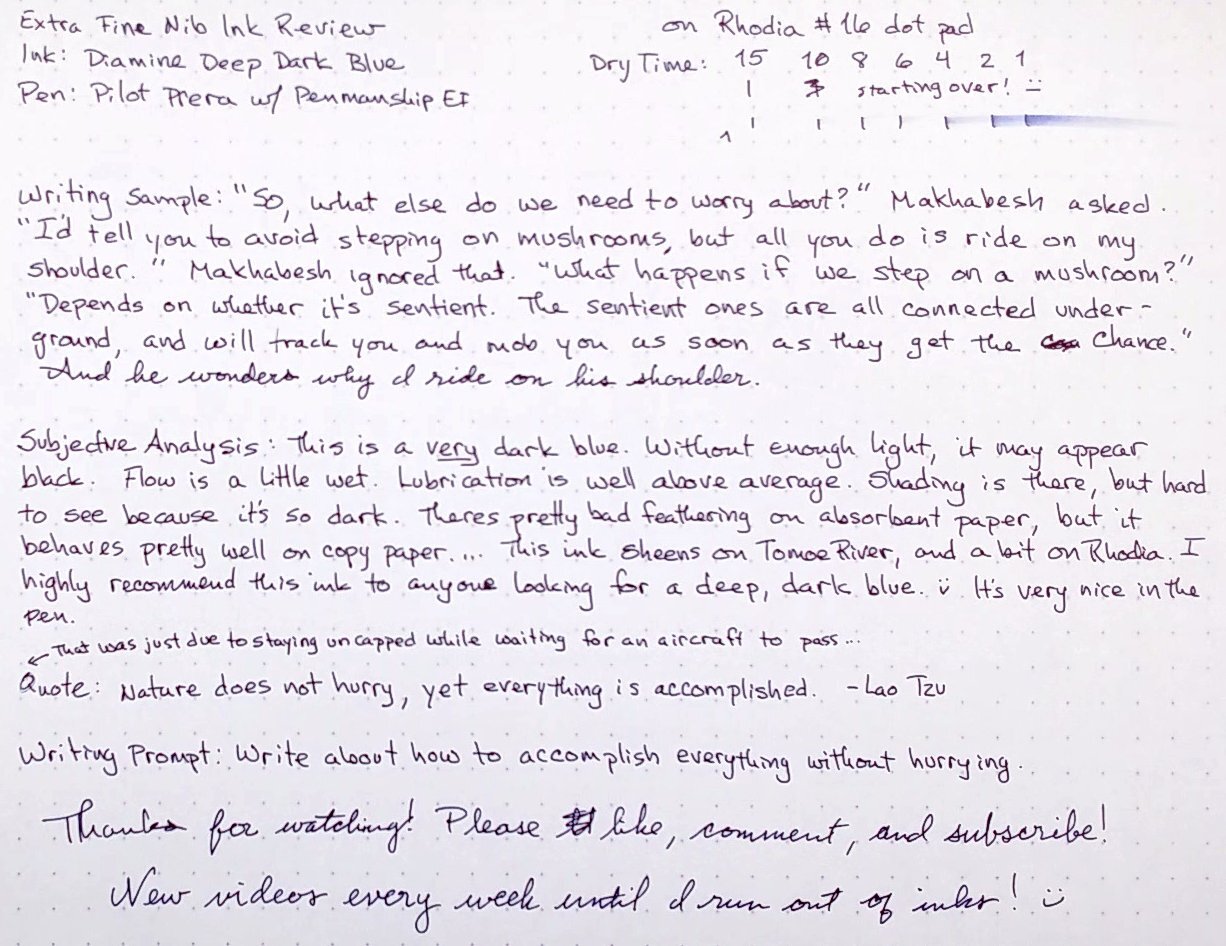 Extra Fine Nib Ink Review
on Rhodia #16 dot pad
Ink: Diamine Deep Dark Blue
Dry Time: 15 10 8 6 4 2 1
Pen: Pilot Prera w/ Penmanship EF
starting over! :)
Writing Sample: "So, what else do we need to worry about?" Makhabesh asked.
"I'd tell you to avoid stepping on mushrooms, but all you do is ride on my
shoulder." Makhabesh ignored that. "What happens if we step on a mushroom?"
"Depends on whether it's sentient. The sentient ones are all connected under-
ground, and will track you and mob you as soon as they get the chance."
And he wonders why I ride on his shoulder.
Subjective Analysis: This is a very dark blue. Without enough light, it may appear
black. Flow is a little wet. Lubrication is well above average. Shading is there, but hard
to see because it's so dark. Theres pretty bad feathering on absorbent paper, but it
behaves pretty well on copy paper.... This ink sheens on Tomoe River, and a bit on Rhodia. I
highly recommend this ink to anyone looking for a deep, dark blue. :) It's very nice in the
pen.
← That was just due to staying uncapped while waiting for an aircraft to pass...
Quote: Nature does not hurry, yet everything is accomplished. -Lao Tzu
Writing Prompt: Write about how to accomplish everything without hurrying.
Thanks for watching! Please like, comment, and subscribe!
New videos every week until I run out of inks! :)